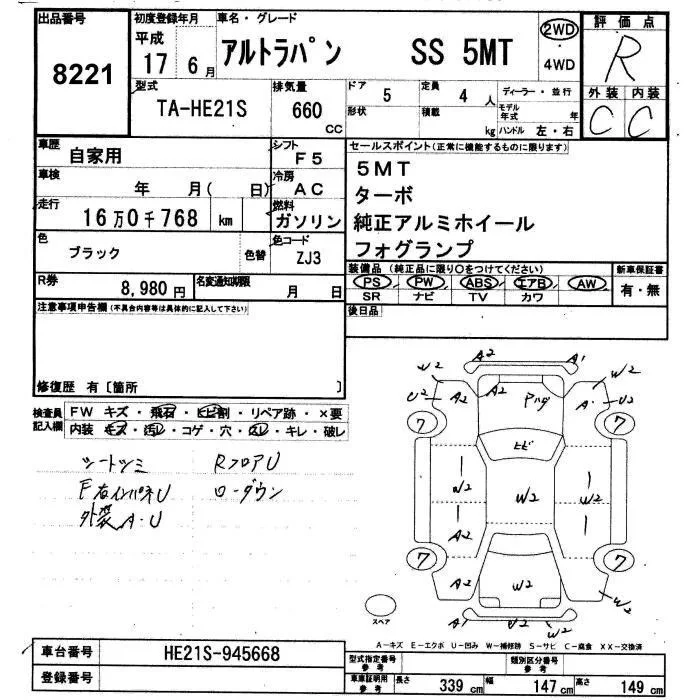 出品番号 8221
初度登録年月 平成 17年 6月
車名・グレード アルトラパン SS 5MT
2WD・4WD
評価点 R
外装 C 内装 C
型式 TA-HE21S
排気量 660 CC
ドア 5
形状
定員 4人
積載 kg
ディーラー・並行
モデル年式 年
ハンドル 左・右
車歴 自家用
シフト F5
車検 年 月( 日)
冷房 AC
走行 16万0千768 km
燃料 ガソリン
色 ブラック 色替
色コード ZJ3
R券 8,980円
名変通知期限 月 日
セールスポイント(正常に機能するものに限ります)
5MT
ターボ
純正アルミホイール
フォグランプ
装備品(純正品に限り○をつけてください)
PS PW ABS エアB AW
SR ナビ TV カワ
新車保証書 有・無
後日品
注意事項申告欄(不具合内容等は具体的に記入して下さい)
修復歴 有〔箇所 〕
検査員記入欄
FW キズ・飛石・ヒビ割・リペア跡・×要
内装 キズ・汚レ・コゲ・穴・スレ・キレ・破レ
シートツミ RフロアU
F右インパネU ローダウン
外装A・U
W2 A2 A1 W2
U2 A2 A2 Pハゲ A1 U2
7 7
ヒビ
W2 W2 W2
A2
7 7
A2 W2
A1 U2 W2 W2
スペア
A-キズ E-エクボ U-凹み W-補修跡 S-サビ C-腐食 XX-交換済
車台番号 HE21S-945668
登録番号
型式指定番号 参考
類別区分番号 参考
車庫証明用 参考 長さ 339 cm 幅 147 cm 高さ 149 cm